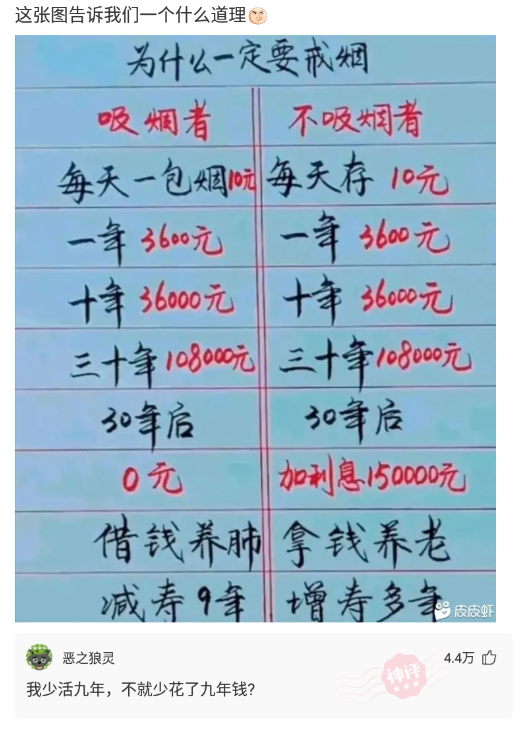 这张图告诉我们一个什么道理
为什么一定要戒烟
吸烟者 不吸烟者
每天一包烟10元 每天存 10元
一年 3600元 一年 3600元
十年 36000元 十年 36000元
三十年108000元 三十年108000元
30年后 30年后
0元 加利息150000元
借钱养肺 拿钱养老
减寿9年 增寿多年
皮皮虾
恶之狼灵 4.4万
神评
我少活九年，不就少花了九年钱?